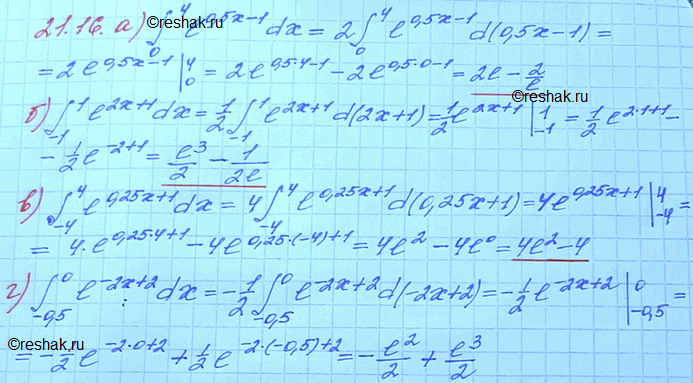 ©reshak.ru
21.16. а) ∫₀⁴ e^(0,5x-1) dx = 2 ∫₀⁴ e^(0,5x-1) d(0,5x-1) =
= 2e^(0,5x-1) |₀⁴ = 2e^(0,5·4-1) - 2e^(0,5·0-1) = 2e - 2/e
б) ∫₋₁¹ e^(2x+1) dx = 1/2 ∫₋₁¹ e^(2x+1) d(2x+1) = 1/2 e^(2x+1) |₋₁¹ = 1/2 e^(2·1+1) -
- 1/2 e^(-2+1) = e³/2 - 1/(2e)
в) ∫₋₄⁴ e^(0,25x+1) dx = 4 ∫₋₄⁴ e^(0,25x+1) d(0,25x+1) = 4e^(0,25x+1) |₋₄⁴ =
= 4·e^(0,25·4+1) - 4e^(0,25·(-4)+1) = 4e² - 4e⁰ = 4e² - 4
г) ∫₋₀,₅⁰ e^(-2x+2) dx = -1/2 ∫₋₀,₅⁰ e^(-2x+2) d(-2x+2) = -1/2 e^(-2x+2) |₋₀,₅⁰ =
©reshak.ru
= -1/2 e^(-2·0+2) + 1/2 e^(-2·(-0,5)+2) = -e²/2 + e³/2